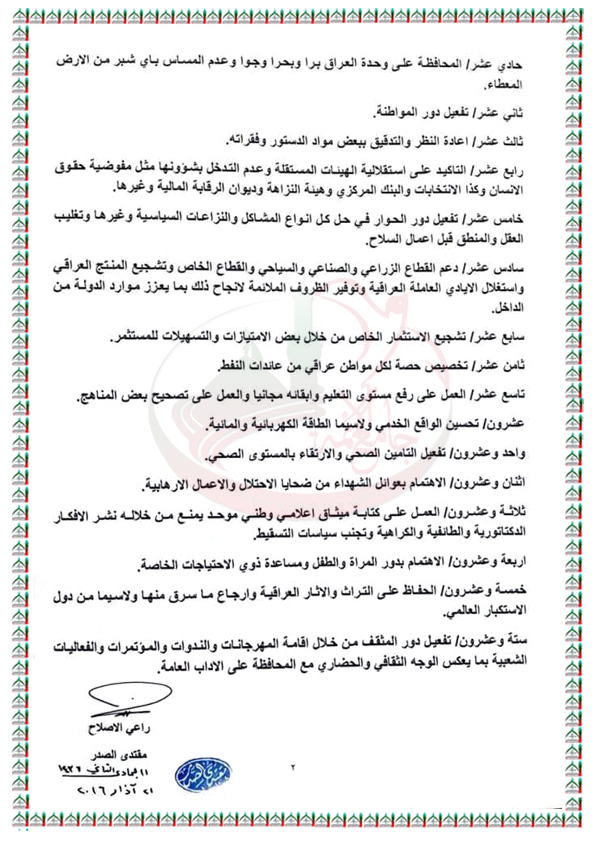 حادي عشر/ المحافظة على وحدة العراق برا وبحرا وجوا وعدم المساس باي شبر من الارض
المعطاء.
ثاني عشر/ تفعيل دور المواطنة.
ثالث عشر/ اعادة النظر والتدقيق ببعض مواد الدستور وفقراته.
رابع عشر/ التاكيد على استقلالية الهيئات المستقلة وعدم التدخل بشؤونها مثل مفوضية حقوق
الانسان وكذا الانتخابات والبنك المركزي وهيئة النزاهة وديوان الرقابة المالية وغيرها.
خامس عشر/ تفعيل دور الحوار في حل كل انواع المشاكل والنزاعات السياسية وغيرها وتغليب
العقل والمنطق قبل اعمال السلاح.
سادس عشر/ دعم القطاع الزراعي والصناعي والسياحي والقطاع الخاص وتشجيع المنتج العراقي
واستغلال الايادي العاملة العراقية وتوفير الظروف الملائمة لانجاح ذلك بما يعزز موارد الدولة من
الداخل.
سابع عشر/ تشجيع الاستثمار الخاص من خلال بعض الامتيازات والتسهيلات للمستثمر.
ثامن عشر/ تخصيص حصة لكل مواطن عراقي من عائدات النفط.
تاسع عشر/ العمل على رفع مستوى التعليم وابقائه مجانيا والعمل على تصحيح بعض المناهج.
عشرون/ تحسين الواقع الخدمي ولاسيما الطاقة الكهربائية والمائية.
واحد وعشرون/ تفعيل التامين الصحي والارتقاء بالمستوى الصحي.
اثنان وعشرون/ الاهتمام بعوائل الشهداء من ضحايا الاحتلال والاعمال الارهابية.
ثلاثة وعشرون/ العمل على كتابة ميثاق اعلامي وطني موحد يمنع من خلاله نشر الافكار
الدكتاتورية والطائفية والكراهية وتجنب سياسات التسقيط.
اربعة وعشرون/ الاهتمام بدور المراة والطفل ومساعدة ذوي الاحتياجات الخاصة.
خمسة وعشرون/ الحفاظ على التراث والاثار العراقية وارجاع ما سرق منها ولاسيما من دول
الاستكبار العالمي.
ستة وعشرون/ تفعيل دور المثقف من خلال اقامة المهرجانات والندوات والمؤتمرات والفعاليات
الشعبية بما يعكس الوجه الثقافي والحضاري مع المحافظة على الاداب العامة.
راعي الاصلاح
مقتدى الصدر
١١ جمادى الثاني ١٤٣٧
٢١ آذار ٢٠١٦
٢